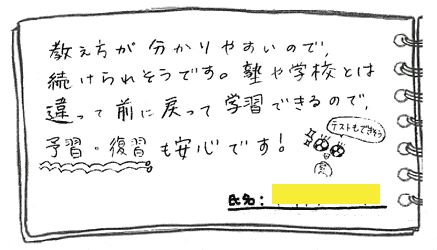 教え方が分かりやすいので、
続けられそうです。塾や学校とは
違って前に戻って学習できるので、
予習・復習も安心です!
テストもできそう
氏名: